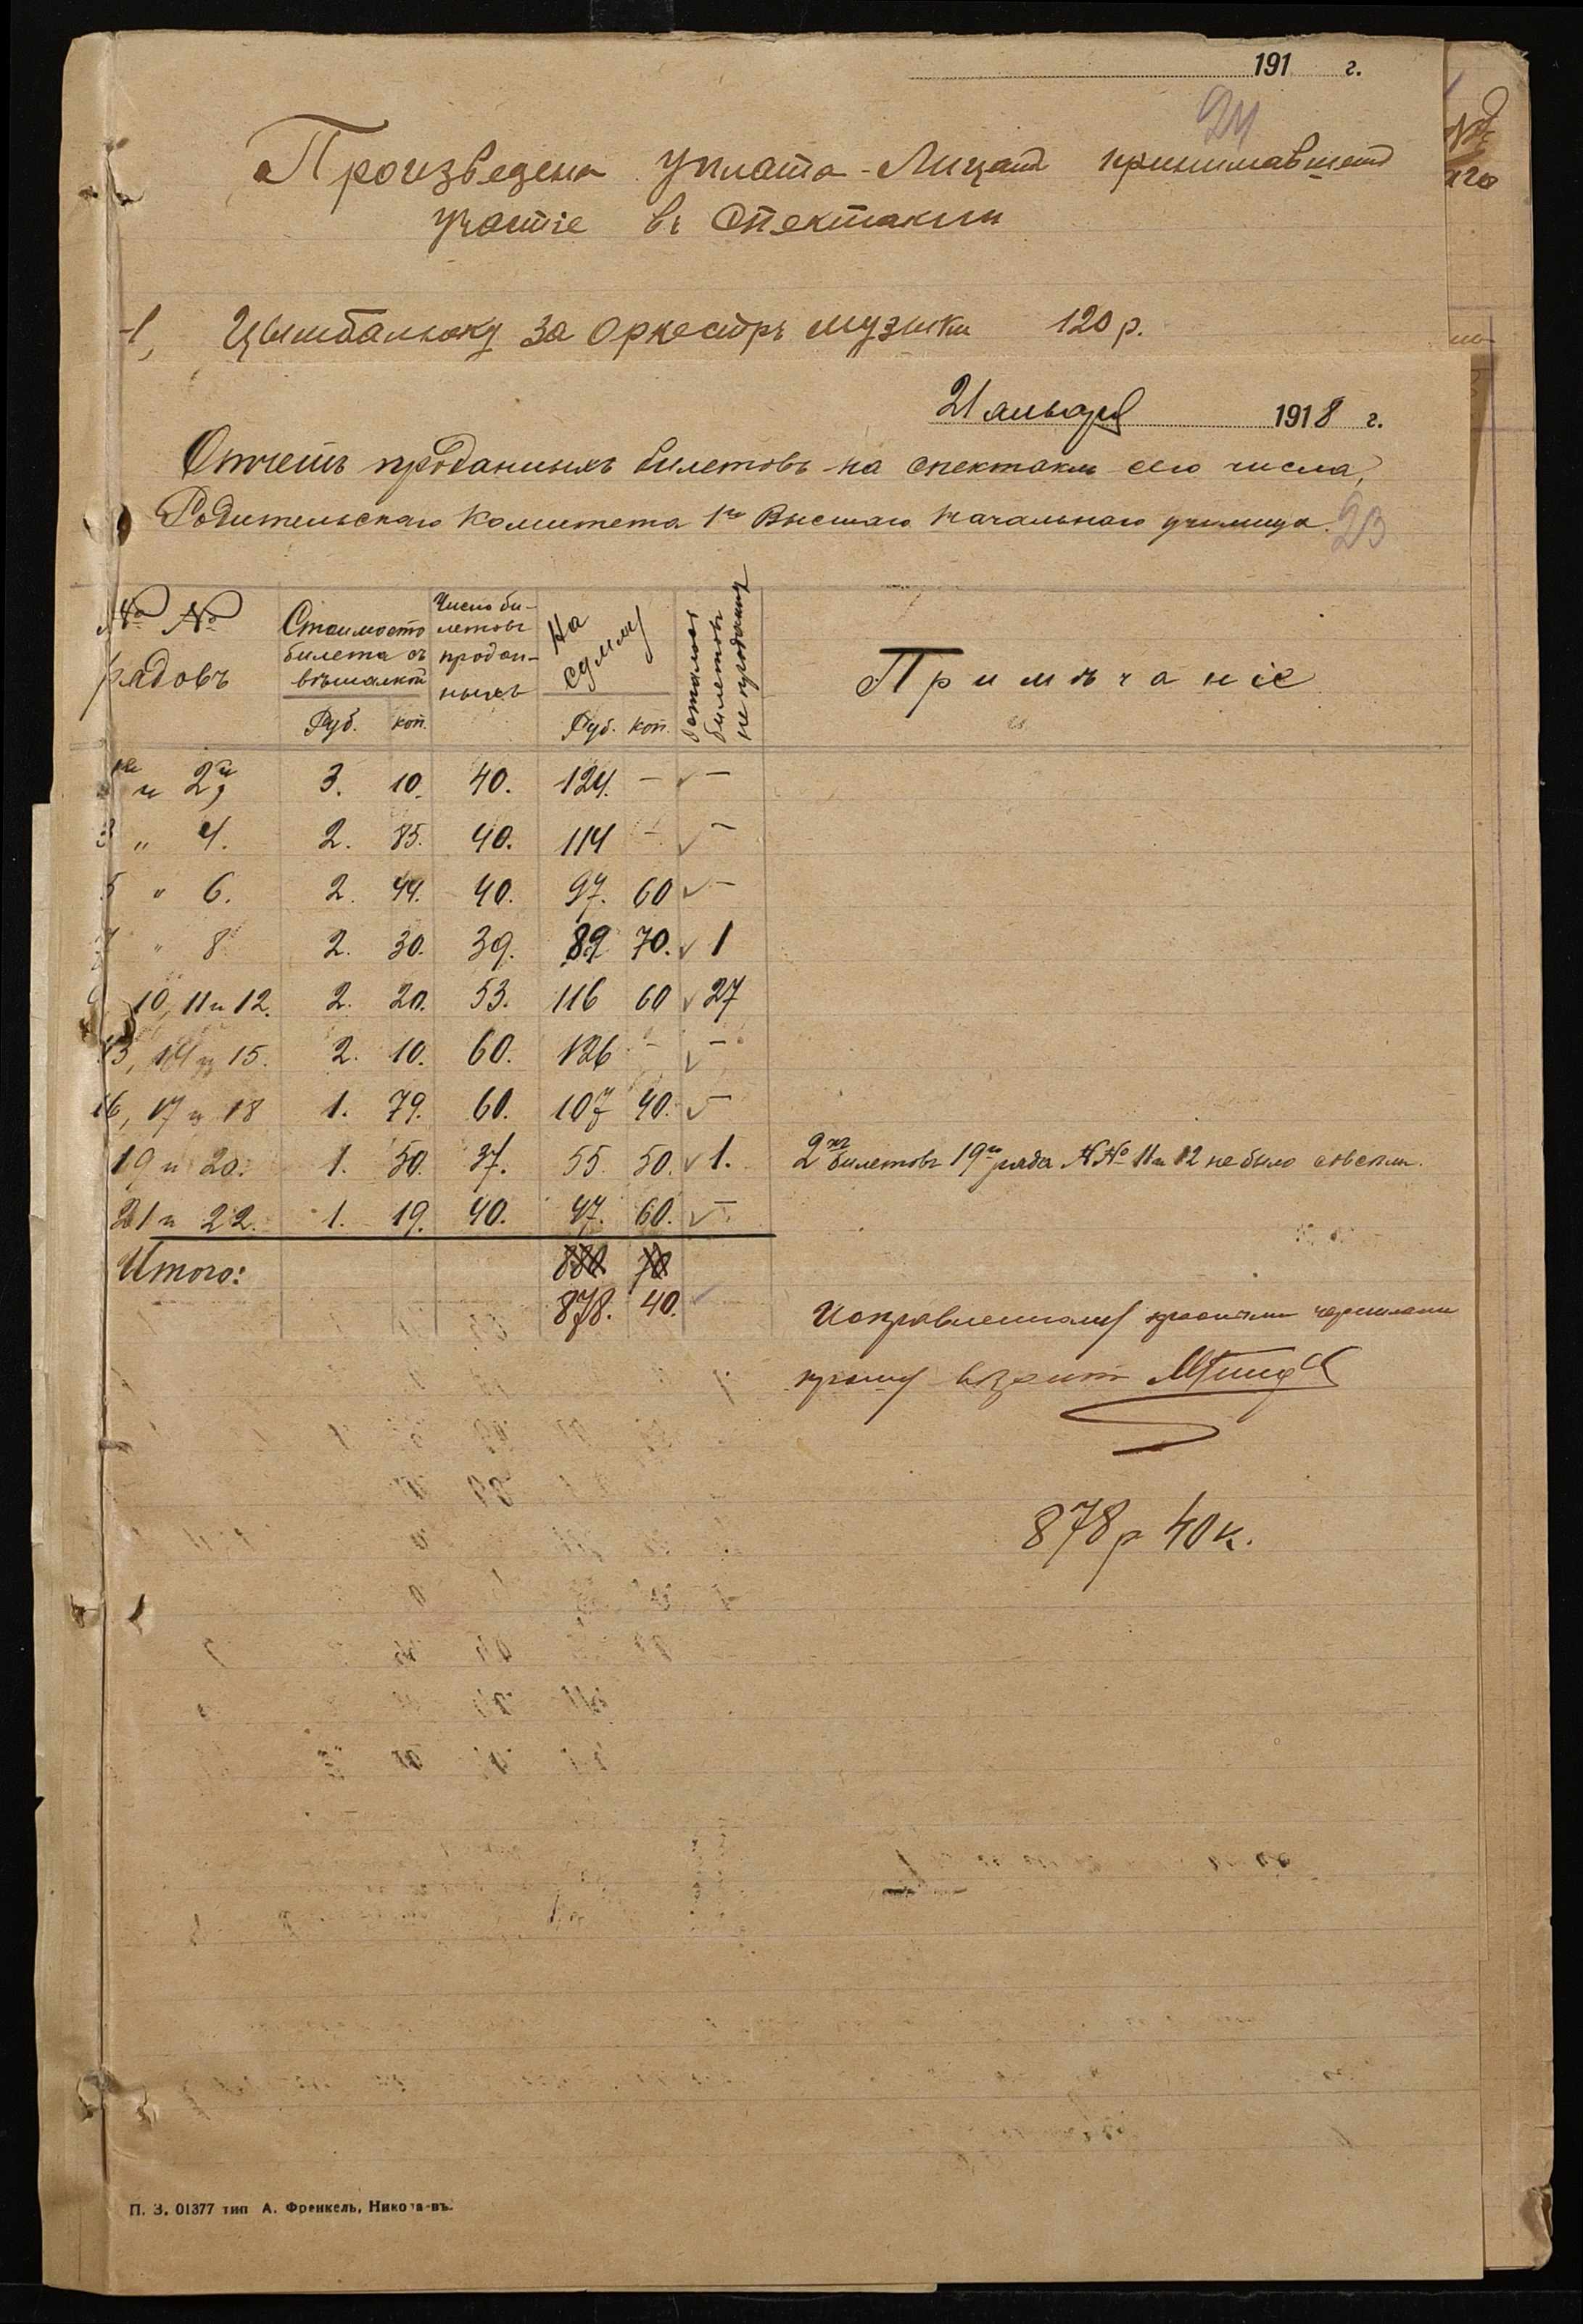 191 г.
24
Произведена уплата Лицамъ принимавшемъ
участiе въ спектакли
1, Цымбальюку за оркестръ музыки 120 р.
21 января 1918 г.
Отчетъ проданныхъ билетовъ на спектакль сего числа,
Родительскаго Комитета 1го Высшаго Начальнаго училища.
23
№ № рядовъ
Стоимость билета съ вѣшалкой
Руб. коп.
Число би-
летовъ
продан-
ныхъ
На сумму
Руб. коп.
осталось билетовъ не проданныхъ
Примѣчанiе
и 2й 3. 10. 40. 124. — —
3 „ 4. 2. 85. 40. 114 — —
5 „ 6. 2. 44. 40. 97. 60 —
7 „ 8 2. 30. 39. 89 70. 1
9, 10, 11 и 12. 2. 20. 53. 116 60 27
13, 14 и 15. 2. 10. 60. 126 — —
16, 17 и 18 1. 79. 60. 107 40. —
19 и 20. 1. 50. 37. 55. 50. 1. 2хъ билетовъ 19го ряда №№ 11 и 12 не было совсѣмъ.
21 и 22. 1. 19. 40. 47. 60. —
Итого:
878. 40.
Исправленному красными чернилами
прошу вѣрить
878 р 40 к.
П. З. 01377 тип А. Френкель, Никола-въ.